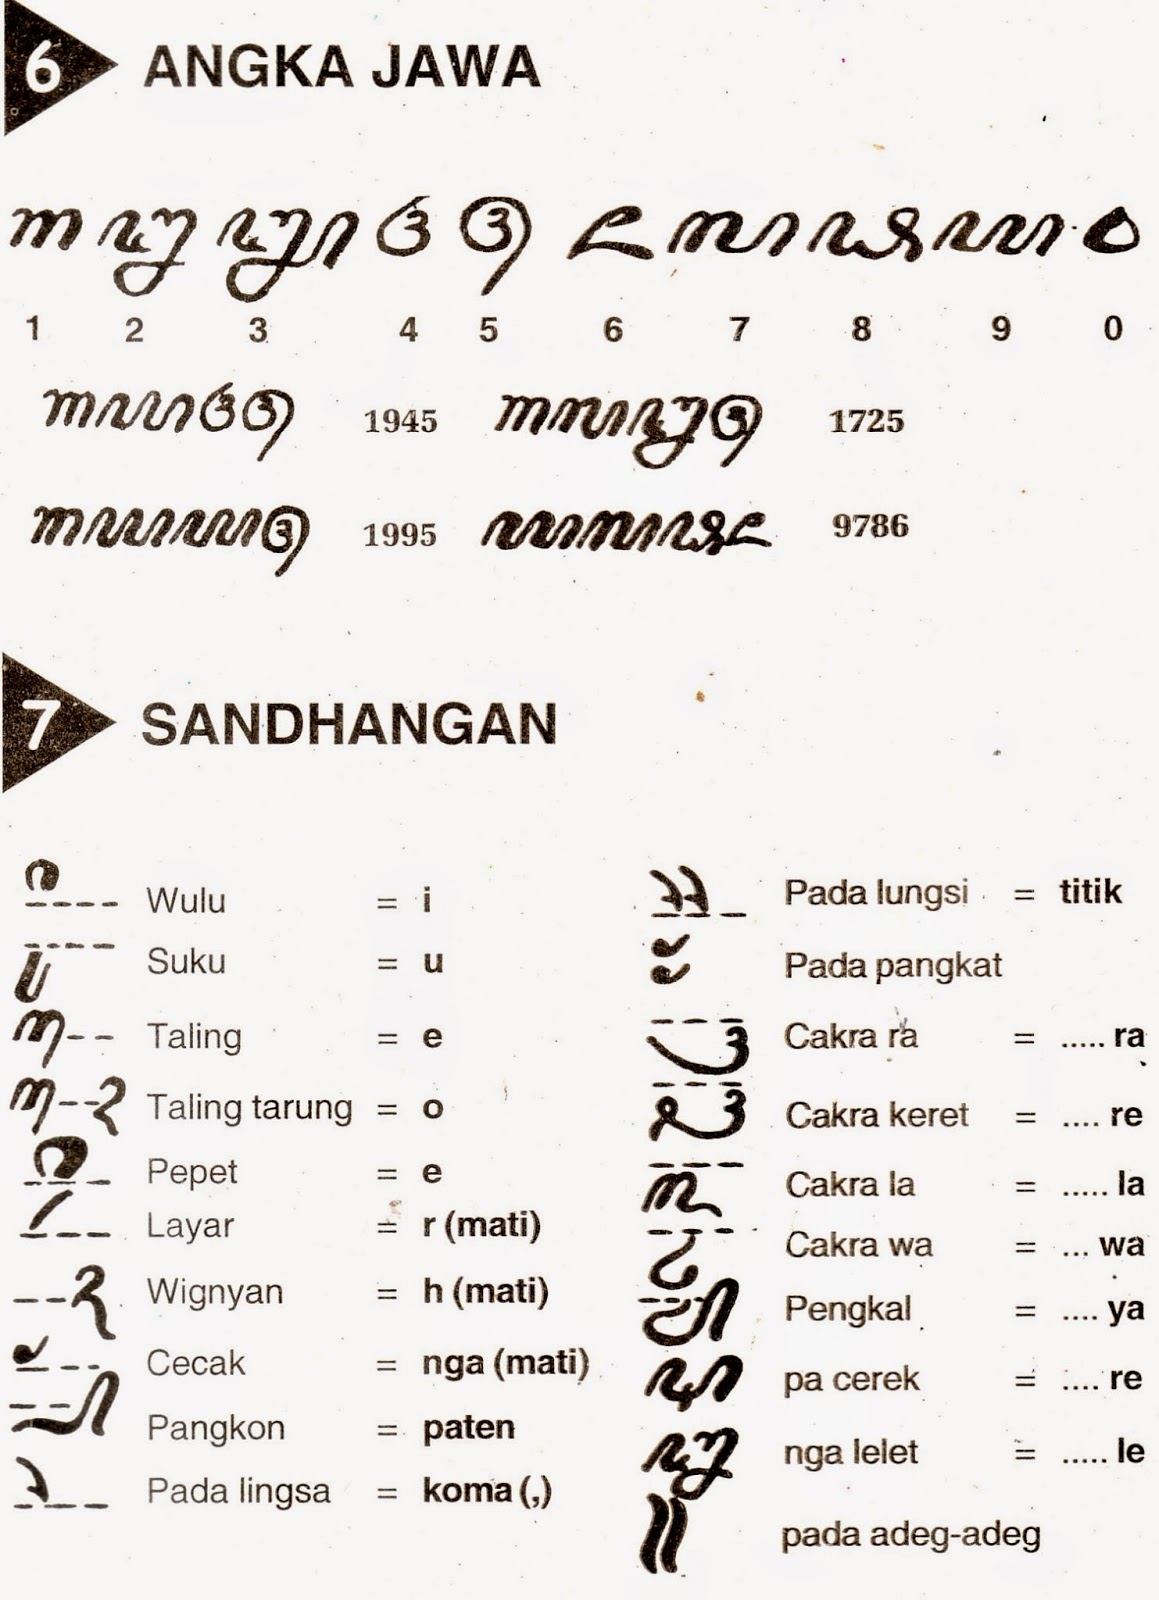 6 ANGKA JAWA
꧑ ꧒ ꧓ ꧔ ꧕ ꧖ ꧗ ꧘ ꧙ ꧐
1 2 3 4 5 6 7 8 9 0
꧑꧙꧔꧕ 1945 ꧑꧗꧒꧕ 1725
꧑꧙꧙꧕ 1995 ꧙꧗꧘꧖ 9786
7 SANDHANGAN
ꦶ Wulu = i
ꦸ Suku = u
ꦺ Taling = e
ꦺꦴ Taling tarung = o
ꦼ Pepet = e
ꦂ Layar = r (mati)
ꦃ Wignyan = h (mati)
ꦁ Cecak = nga (mati)
꧀ Pangkon = paten
꧈ Pada lingsa = koma (,)
꧉ Pada lungsi = titik
꧇ Pada pangkat
ꦿ Cakra ra = ..... ra
ꦽ Cakra keret = .... re
꧀ꦭ Cakra la = ..... la
꧀ꦮ Cakra wa = ... wa
ꦾ Pengkal = .... ya
ꦉ pa cerek = .... re
ꦊ nga lelet = ..... le
꧋ pada adeg-adeg